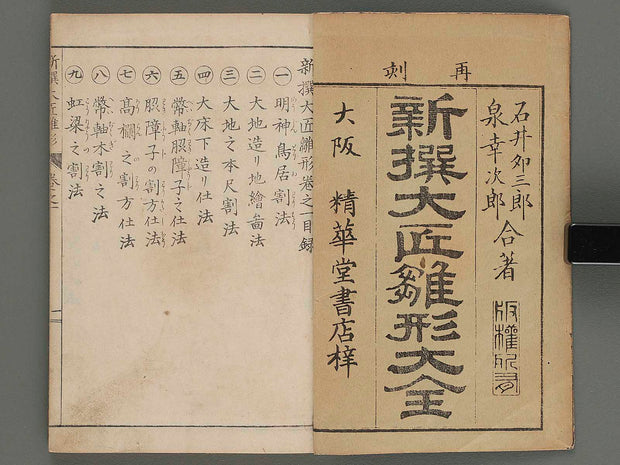 再刻
石井卯三郎
泉幸次郎
合著
版權所有
新撰大匠雛形大全
大阪 精華堂書店梓
新撰大匠雛形卷之一目録
一 明神鳥居割法
二 大地造り地繪啚法
三 大地之本尺割法
四 大床下造り仕法
五 幣軸照障子之仕法
六 照障子の割方仕法
七 高欄之割方仕法
八 幣軸木割之法
九 虹梁之割法
新撰大匠雛形 卷之一